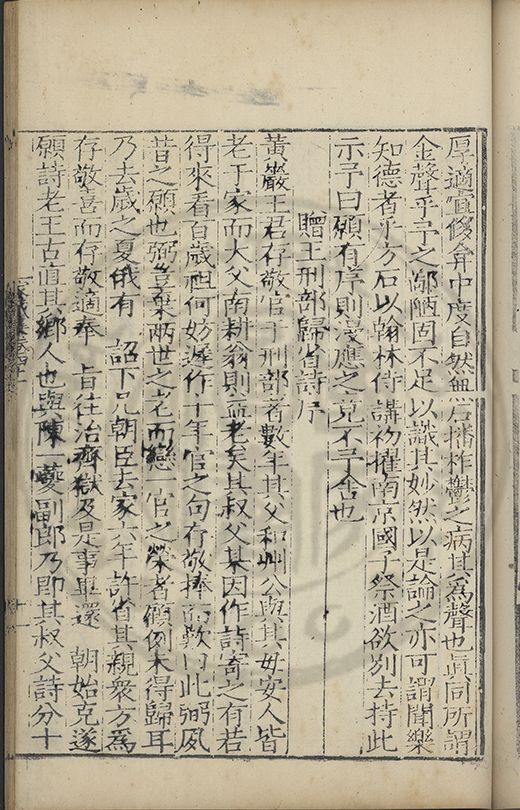 厚適宜侈弇中度自然無石播柞鬱之病其爲聲也眞同所謂
金聲乎予之鄙陋固不足以識其妙然以是論之亦可謂聞樂
知德者乎方石以翰林侍講初擢南京國子祭酒欲別去持此
示予曰願有序則漫應之竟不予舍也
贈王刑部歸省詩序
黃巖王君存敬官于刑部者數年其父和州公與其母安人皆
老于家而大父南耕翁則益老矣其叔父某因作詩寄之有若
得來看百歲祖何妨遲作十年官之句存敬捧而歎曰此弼夙
昔之願也弼豈棄兩世之老而戀一官之榮者顧例未得歸耳
乃去歲之夏俄有 詔下凡朝臣去家六年許省其親衆方爲
存敬喜而存敬適奉 旨往治齊獄及是事畢還 朝始克遂
願詩老王古直其鄉人也與陳一夔副郎乃即其叔父詩分十